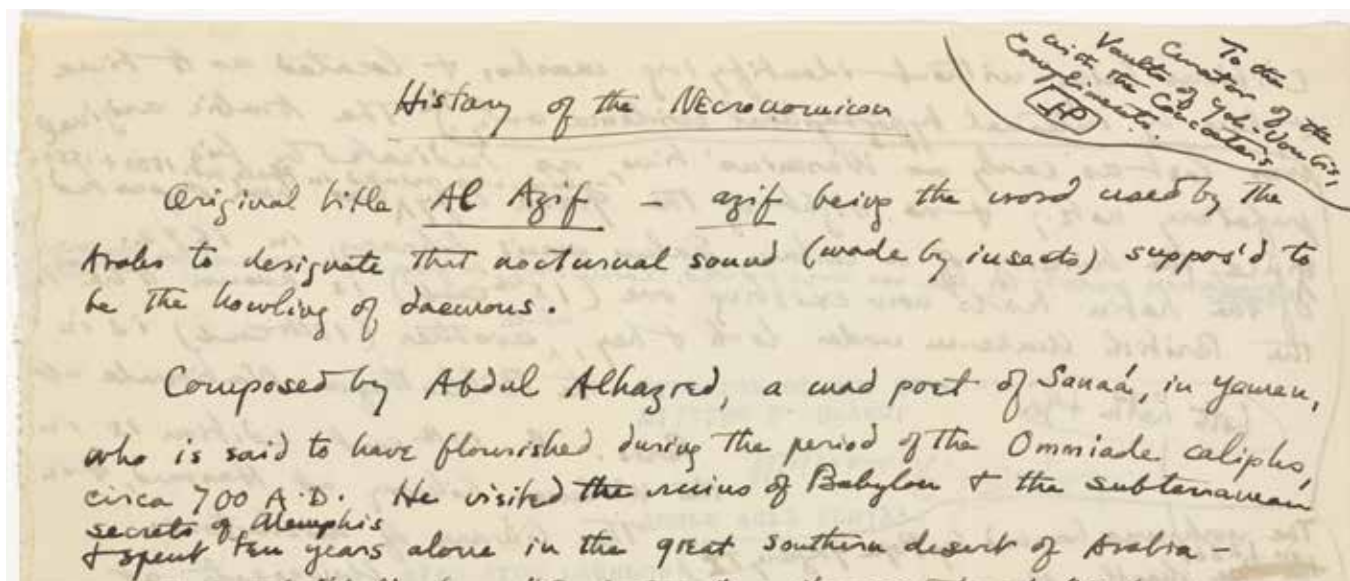 To the
Curator of the
Vaults of Yoh-Vombis,
with the Concocter's
Compliments.
HP
History of the Necronomicon
Original title Al Azif — azif being the word used by the
Arabs to designate that nocturnal sound (made by insects) suppos'd to
be the howling of daemons.
Composed by Abdul Alhazred, a mad poet of Sanaá, in Yemen,
who is said to have flourished during the period of the Ommiade caliphs,
circa 700 A.D. He visited the ruins of Babylon & the subterranean
secrets of Memphis
& spent ten years alone in the great southern desert of Arabia —